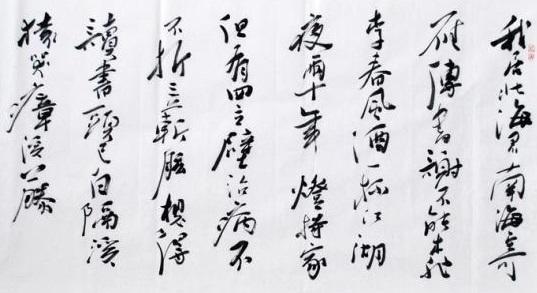 我居北海君南海寄
雁傳書謝不能桃
李春風酒一杯江湖
夜雨十年燈持家
但有四立壁治病不
不折三蘄肱想得
讀書頭已白隔溪
猿哭瘴溪藤